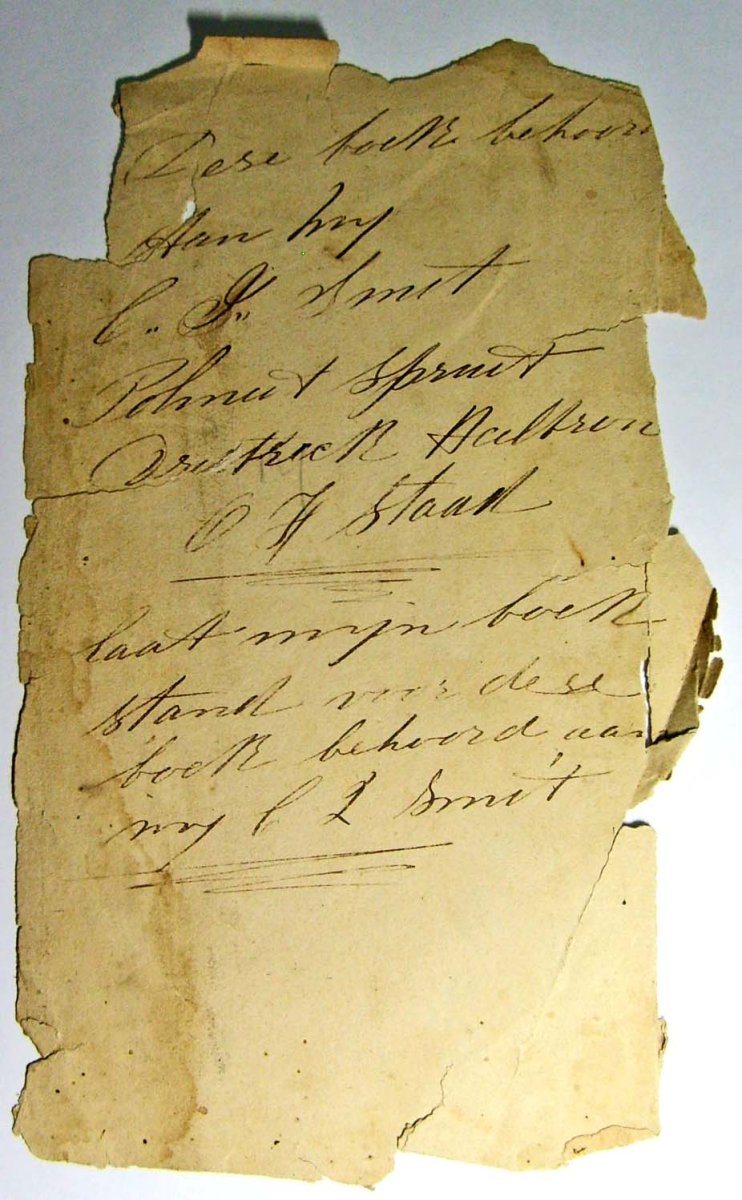 Dese boek behoord
Aan my
C. J. Smit
Polmeet Spruit
Distrieck Heilbron
O V Staad
laat mijn boek
stand voor dese
boek behoord aan
my C J Smit